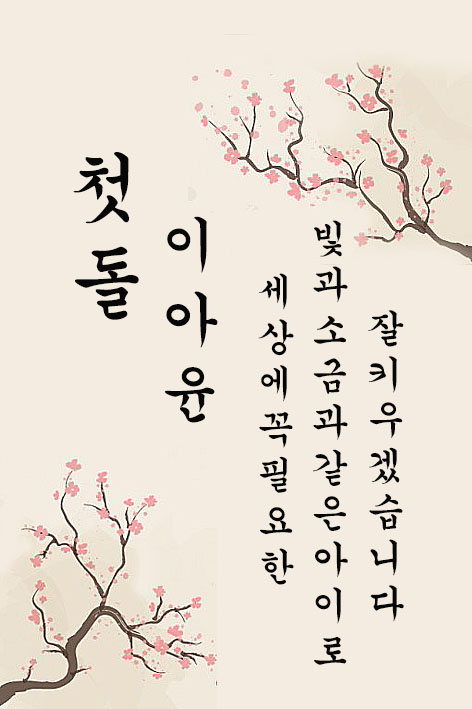 첫돌
이아윤
세상에꼭필요한
빛과소금과같은아이로
잘키우겠습니다